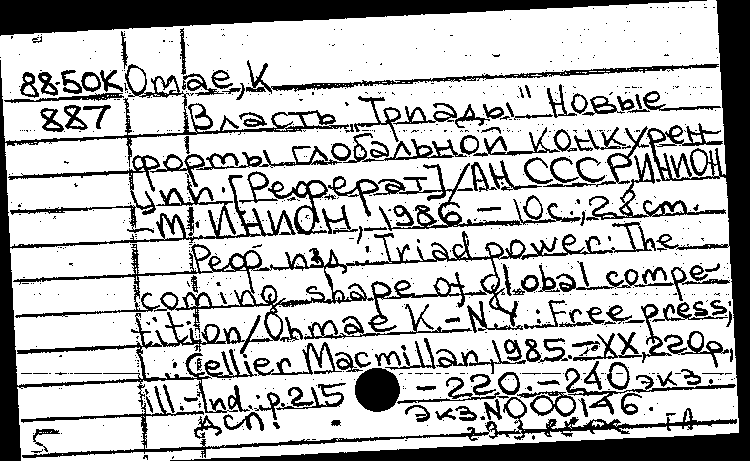 88-50К Отае, К
887 Власть "Триады" Новые
формы глобальной конкурен-
ции. [Реферат] / АН СССР ИНИОН
-М: ИНИОН, 1986. - 10с.; 28 cm.
Реф. изд.: Triad power: The
coming shape of global compe-
tition/Ohmae K. - N.Y.: Free press;
L.: Collier Macmillan, 1985. - XX, 220p.,
ill. - Ind.: p. 215 - 220. - 240 экз.
ДСП! Экз. N000146.
5 ГА